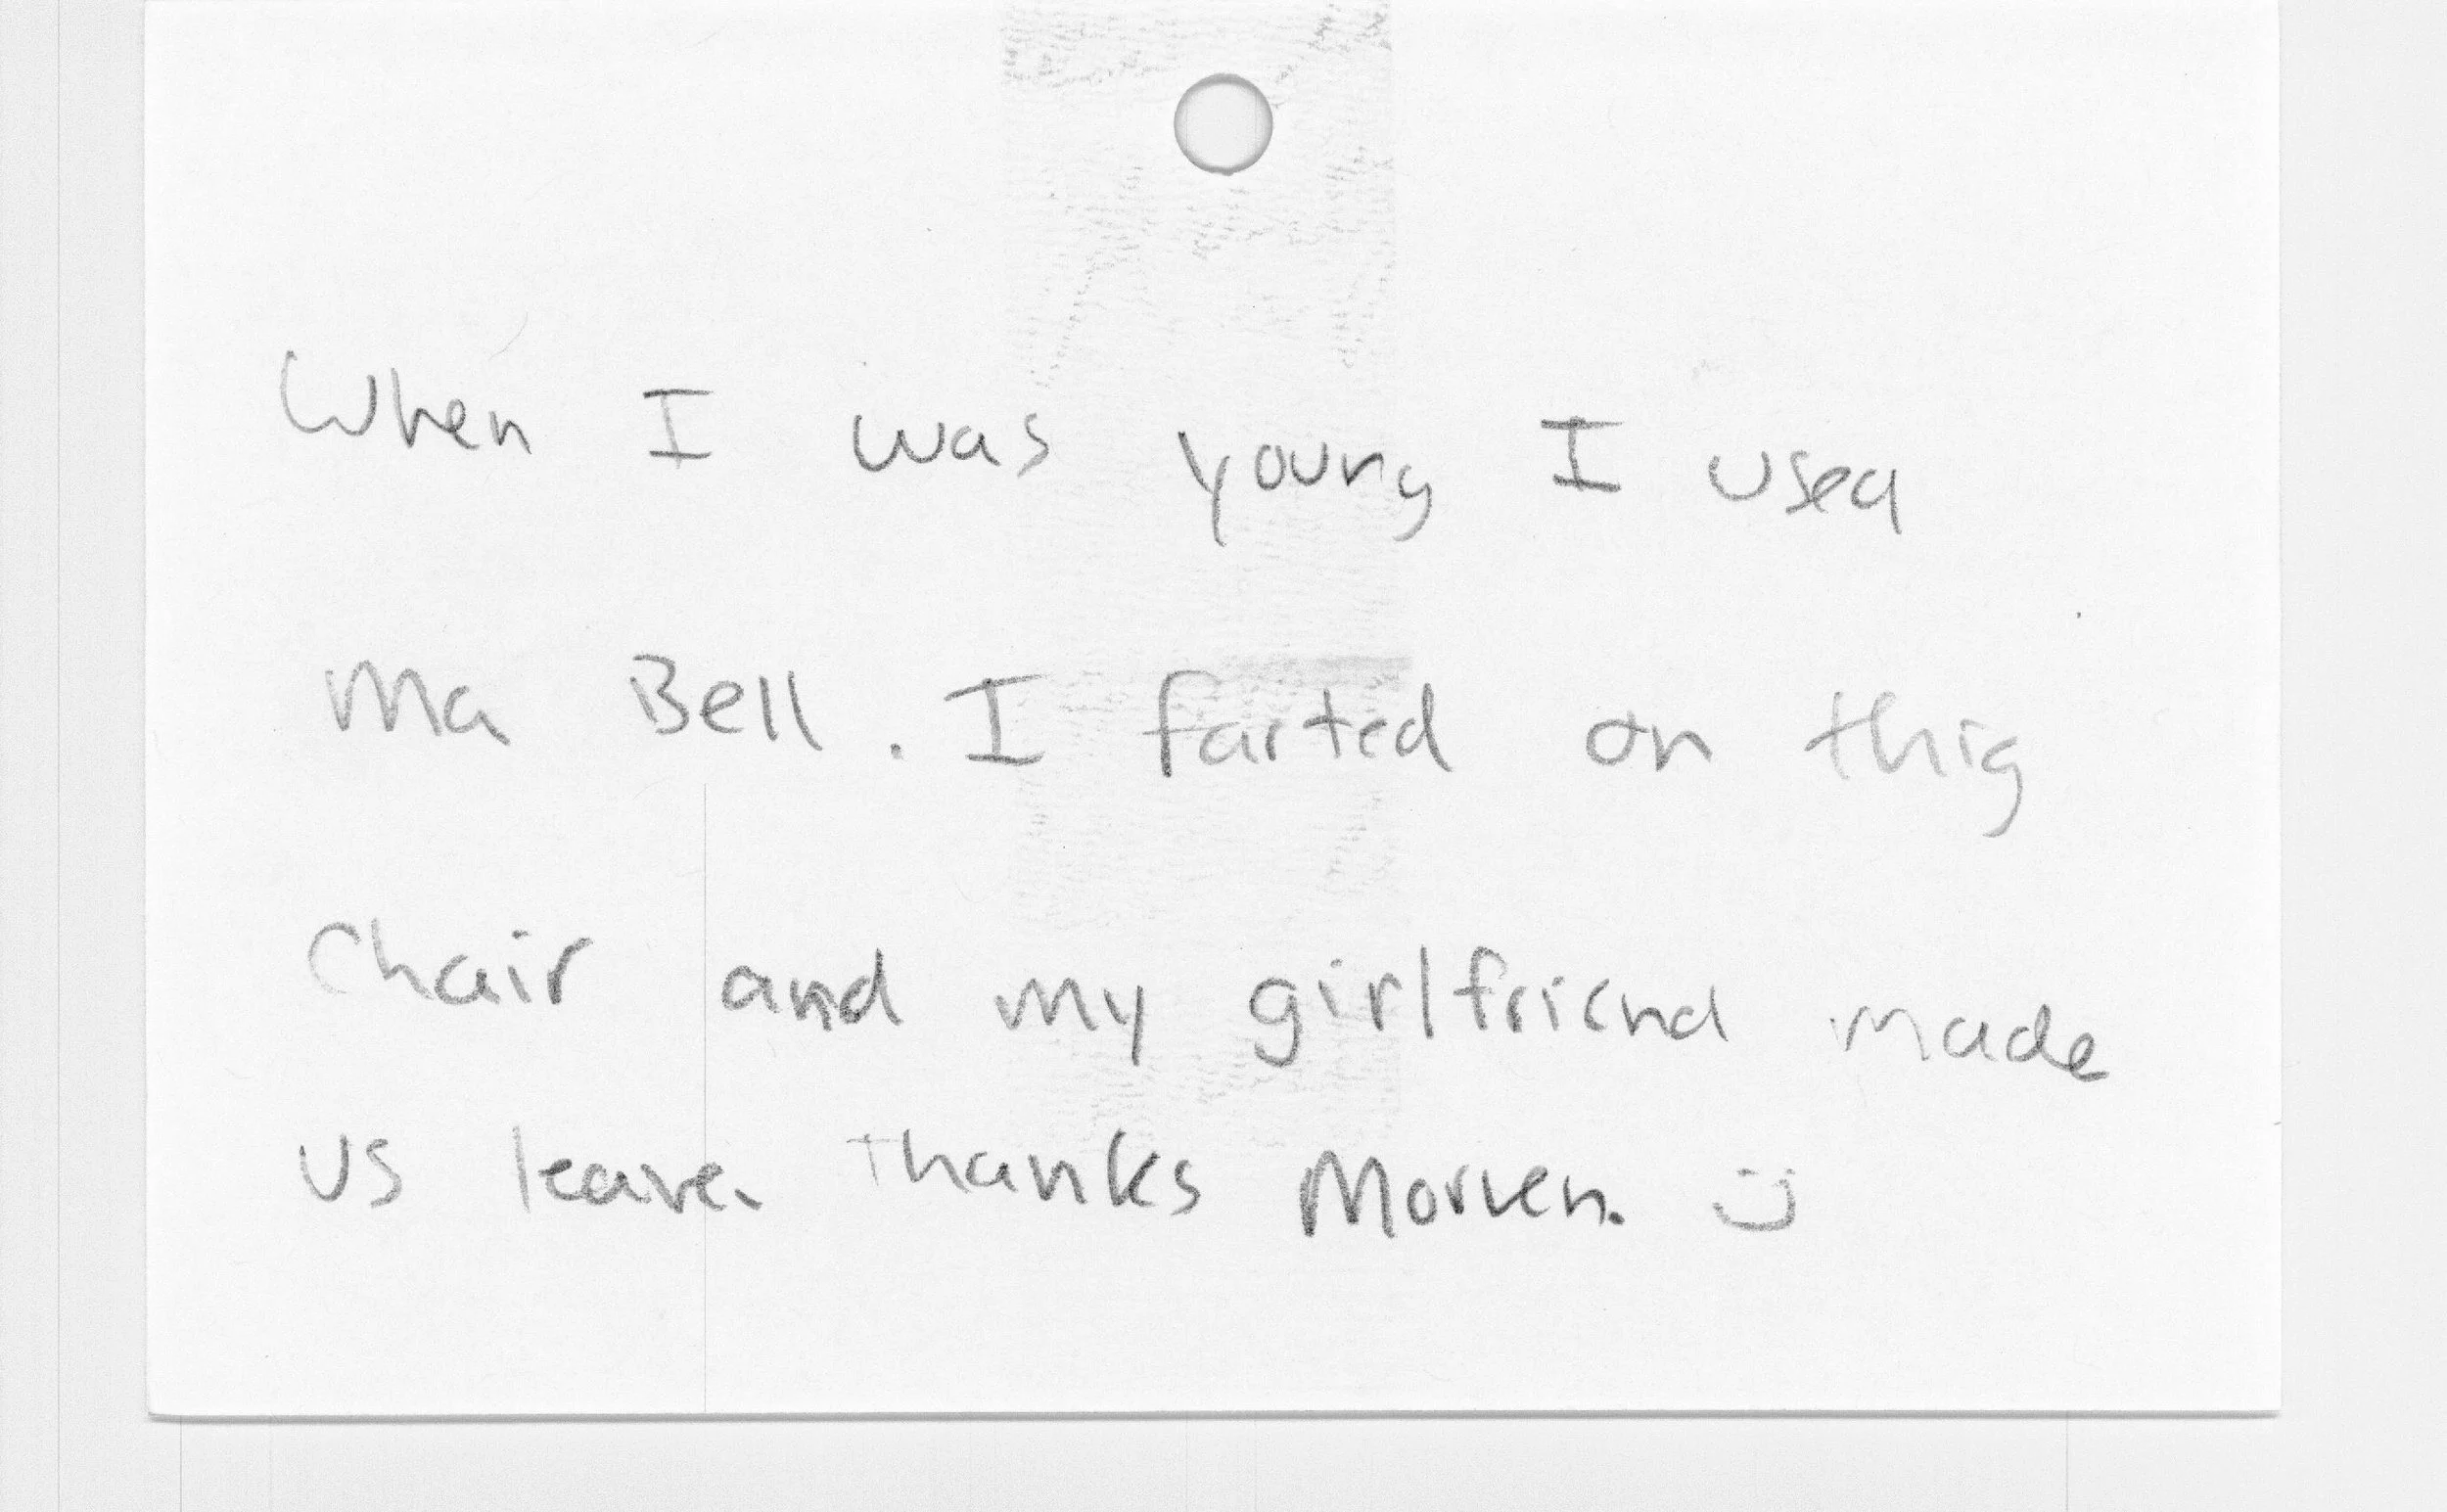 When I was young I used
Ma Bell. I farted on this
Chair and my girlfriend made
us leave. Thanks